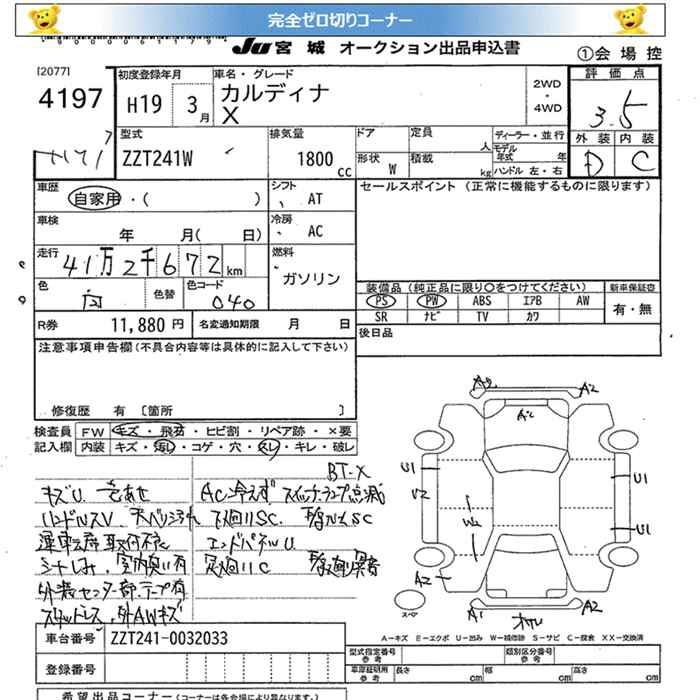 完全ゼロ切りコーナー
JU 宮城 オークション出品申込書
①会場控
[2077]
4197
初度登録年月
H19 3月
車名・グレード
カルディナ
X
2WD
・
4WD
評価点
3.5
外装 内装
D C
型式
ZZT241W
排気量
1800 cc
ドア
定員
人
形状 W
積載
kg
ディーラー・並行
モデル年式 年
ハンドル 左・右
車歴
自家用・( )
シフト
AT
セールスポイント (正常に機能するものに限ります)
車検
年 月( 日)
冷房
AC
走行
41万2千672km
燃料
ガソリン
色
白
色替
色コード
040
装備品 (純正品に限り〇をつけてください)
新車保証書
PS PW ABS エアB AW
有・無
SR ナビ TV カワ
R券 11,880 円
名変通知期限 月 日
後日品
注意事項申告欄(不具合内容等は具体的に記入して下さい)
修復歴 有 [箇所 ]
検査員 FW キズ・飛石・ヒビ割・リペア跡・×要
記入欄 内装 キズ・汚レ・コゲ・穴・スレ・キレ・破レ
BT-X
キズU 色あせ
AC冷えず スイッチランプ点滅
ハンドルスレ
下廻りSC
運転席取付不良
エンドパネルU
シートしみ、室内臭い有
下廻りC
外装センター部テープ有
スタッドレス、外AWキズ
A2 A2 A2
U1 U1
U2
U1
W2
A2
A1 A2
スペア
A―キズ E―エクボ U―凹み W―補修跡 S―サビ C―腐食 XX―交換済
車台番号 ZZT241-0032033
登録番号
型式指定番号
参考
類別区分番号
参考
車庫証明用
参考
長さ cm 幅 cm 高さ cm
希望出品コーナー (コーナーは各会場により異なります。)